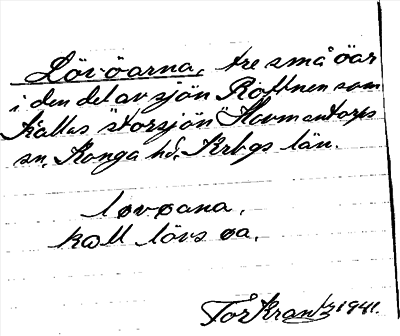 Lövöarna, tre små öar
i den del av sjön Röttnen som
kallas "storsjön" Hovmantorps
sn. Konga hd. Krbgs län.
løvøana.
kall lövs øa.
Tor Krantz 1941.